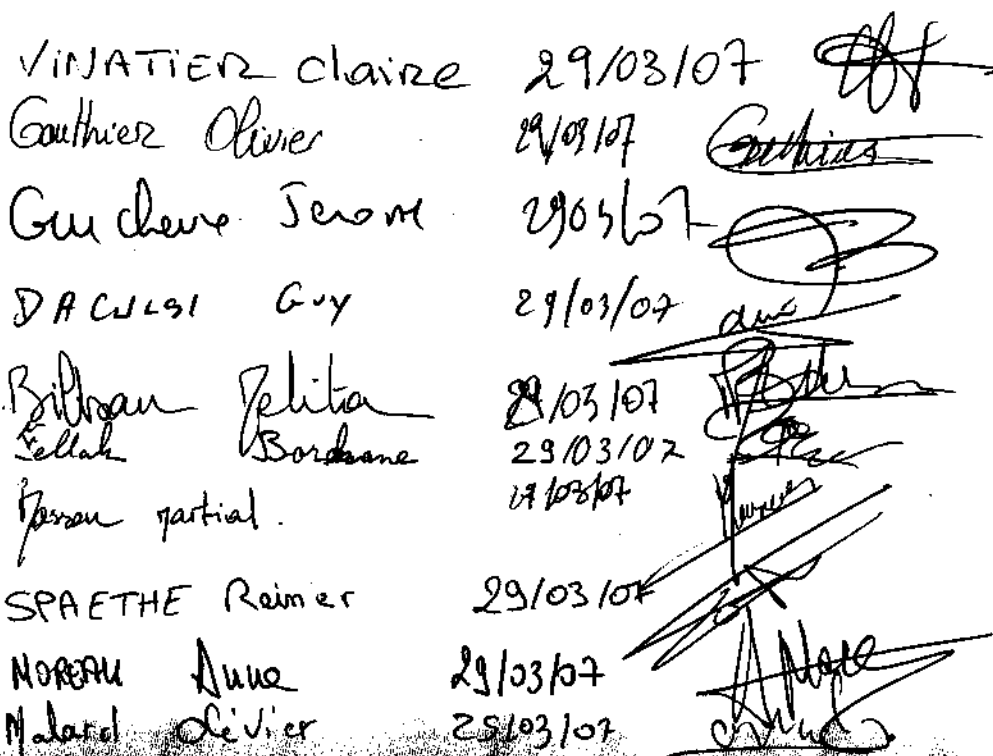 VINATIER Claire 29/03/07
Gauthier Olivier 29/03/07 Gauthier
Guicheux Jerome 29/03/07
DACULSI Guy 29/03/07
29/03/07
Fellah Bordhane 29/03/07
Masson Martial. 29/03/07
SPAETHE Reiner 29/03/07
MOREAU Anne 29/03/07
Malard Olivier 29/03/07